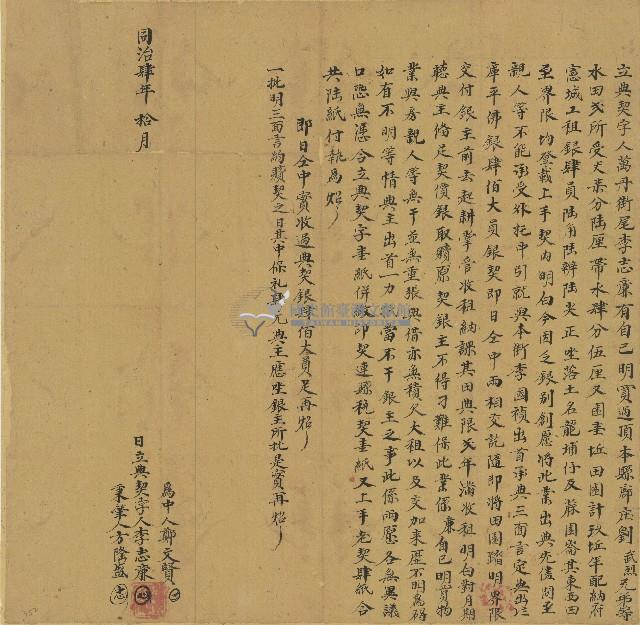 立典契字人萬丹街尾李志廉有自己明買過頂本縣
水田弍所受大業分陸厘帶水肆分伍厘又園壹坵田園計玖坵年配納府
憲城工租銀肆員陸角陸辨陸尖正坐落土名龍埔仔及蔴園崙其東西四
至界限均登載上手契內明白今因乏銀別創愿將此業出典先儘問至
親人等不能承受外托中引就與本街李國禎出首承典三面言定典出
庫平佛銀肆佰大員銀契即日仝中兩相交訖隨即將田園踏明界限
交付銀主前去起耕掌管收租納課其田典限年滿收租明白對月期
聽典主俻足契價銀取贖原契銀主不得刁難保此業係廉自己明買物
業與房親人等無干並無重張典借亦無積欠大租以及交加來歷不明為碍
如有不明等情典主出首一力當不干銀主之事此係兩愿各無異議
口恐無憑合立典契字壹紙併繳印契連縣稅契壹紙又上手老契肆紙合
共陸紙付執為炤
即日仝中實收過典契銀肆佰大員足再炤
一批明三面言約贖契之日其中保礼典主應坐銀主所批是實再炤
同治肆年拾月
日立典契字人李志廉
為中人鄭文賢
秉筆人方隆盛
國立臺灣歷史博物館
TAIWAN HISTORY